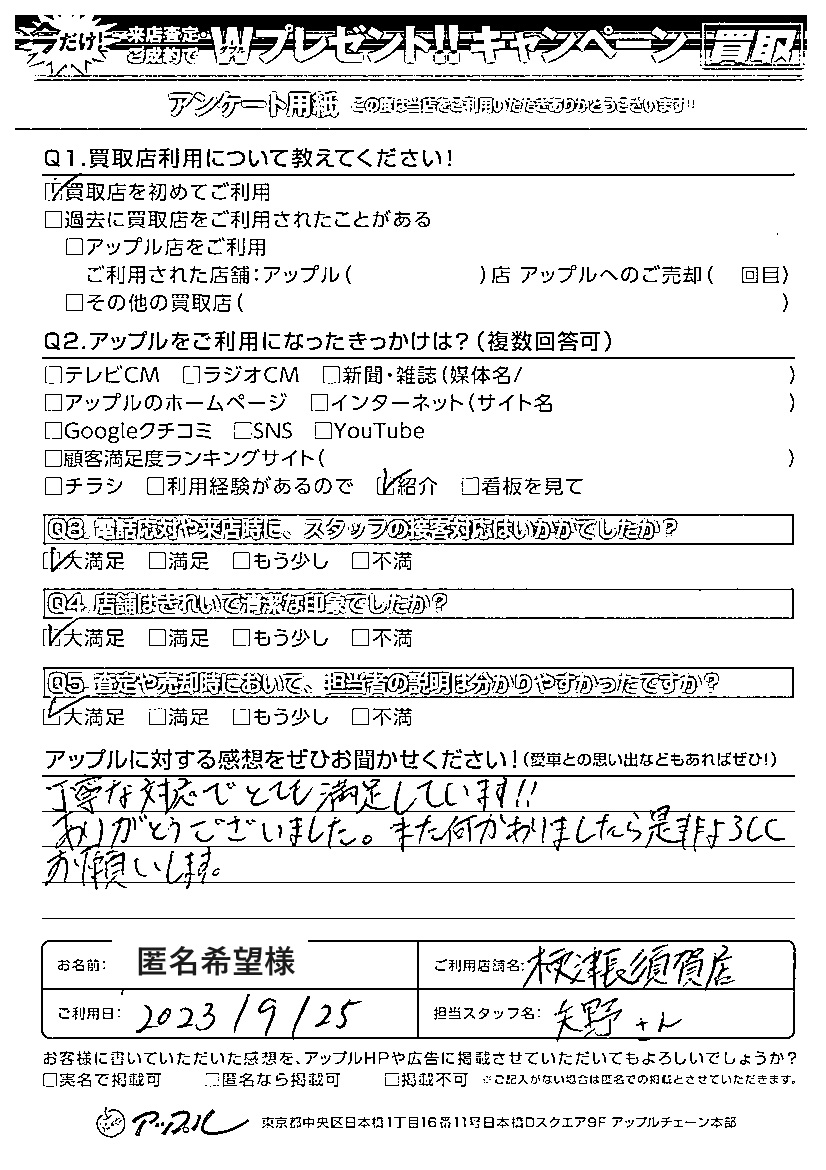 だけ! 来店査定・ご成約で Wプレゼント!! キャンペーン 買取
アンケート用紙 この度は当店をご利用いただきありがとうございます!!
Q1.買取店利用について教えてください!
☑買取店を初めてご利用
□過去に買取店をご利用されたことがある
□アップル店をご利用
ご利用された店舗:アップル( )店 アップルへのご売却( 回目)
□その他の買取店( )
Q2.アップルをご利用になったきっかけは?(複数回答可)
□テレビCM □ラジオCM □新聞・雑誌(媒体名/ )
□アップルのホームページ □インターネット(サイト名 )
□Googleクチコミ □SNS □YouTube
□顧客満足度ランキングサイト( )
□チラシ □利用経験があるので ☑紹介 □看板を見て
Q3. 電話応対や来店時に、スタッフの接客対応はいかがでしたか?
☑大満足 □満足 □もう少し □不満
Q4. 店舗はきれいで清潔な印象でしたか?
☑大満足 □満足 □もう少し □不満
Q5. 査定や売却時において、担当者の説明は分かりやすかったですか?
☑大満足 □満足 □もう少し □不満
アップルに対する感想をぜひお聞かせください!(愛車との思い出などもあればぜひ!)
丁寧な対応でとても満足しています!!
ありがとうございました。また何かありましたら是非よろしく
お願いします。
お名前: 匿名希望様 ご利用店舗名: 木更津長須賀店
ご利用日: 2023/9/25 担当スタッフ名: 矢野さん
お客様に書いていただいた感想を、アップルHPや広告に掲載させていただいてもよろしいでしょうか?
□実名で掲載可 □匿名なら掲載可 □掲載不可 ※ご記入がない場合は匿名での掲載とさせていただきます。
アップル 東京都中央区日本橋1丁目16番11号日本橋Dスクエア9F アップルチェーン本部